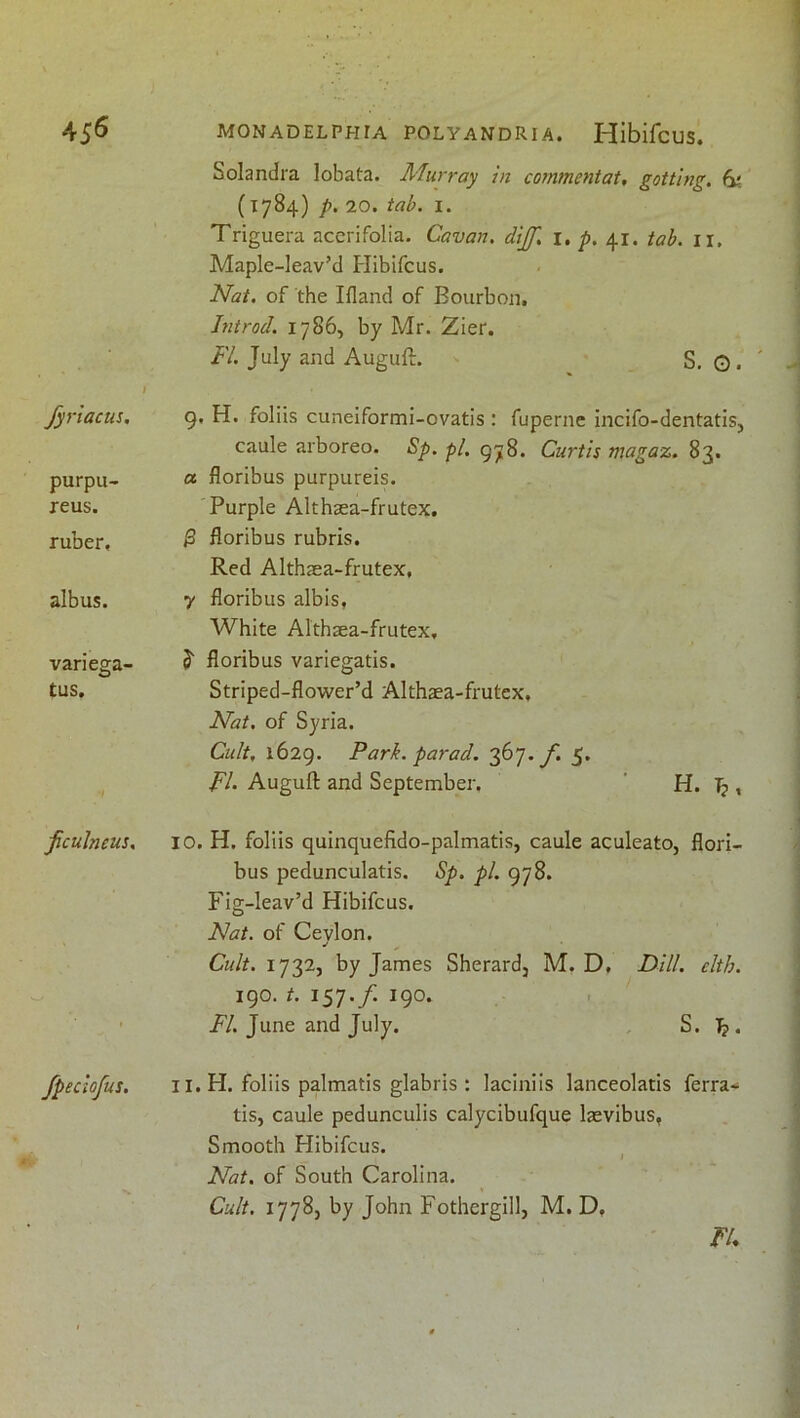 456 MONADELPHIA POLYANDRIA. Hibiſcus.
Solandra lobata. Murray in commentat. gotting. 6.
(1784) p. 20. tab. 1.
Triguera acerifolia. Cavan. diſſ. 1. p. 41. tab. 11.
Maple-leav’d Hibiſcus.
Nat. of the Iſland of Bourbon.
Introd. 1786, by Mr. Zier.
Fl. July and Auguſt. S. ☉.
ſyriacus. 9. H. foliis cuneiformi-ovatis : ſuperne inciſo-dentatis,
caule arboreo. Sp. pl. 978. Curtis magaz. 83.
purpu- α floribus purpureis.
reus. Purple Althæa-frutex.
ruber. β floribus rubris.
Red Althæa-frutex.
albus. γ floribus albis.
White Althæa-frutex.
variega- δ floribus variegatis.
tus. Striped-flower’d Althæa-frutex.
Nat. of Syria.
Cult. 1629. Park. parad. 367. f. 5.
Fl. Auguſt and September. H. ♄.
ficulneus. 10. H. foliis quinquefido-palmatis, caule aculeato, flori-
bus pedunculatis. Sp. pl. 978.
Fig-leav’d Hibiſcus.
Nat. of Ceylon.
Cult. 1732, by James Sherard, M. D. Dill. elth.
190. t. 157. f. 190.
Fl. June and July. S. ♄.
ſpecioſus. 11. H. foliis palmatis glabris : laciniis lanceolatis ſerra-
tis, caule pedunculis calycibuſque lævibus.
Smooth Hibiſcus.
Nat. of South Carolina.
Cult. 1778, by John Fothergill, M. D.
Fl.